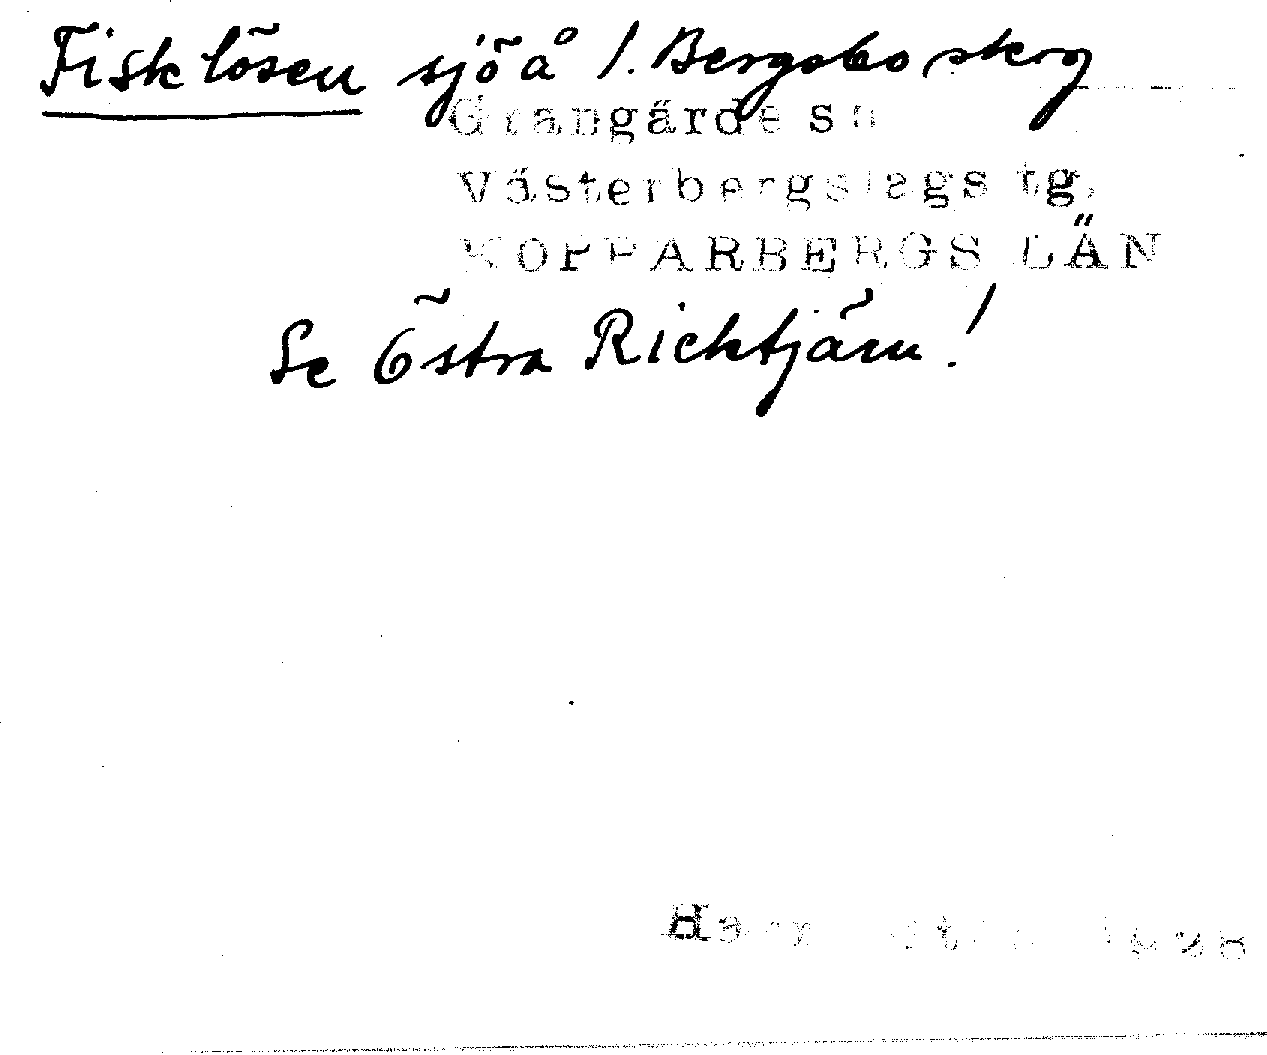 Fisklösen sjö å /. Bergsbo skog
Grangärde sn
Västerbergslags tg.
KOPPARBERGS LÄN
Se Östra Ricktjärn!